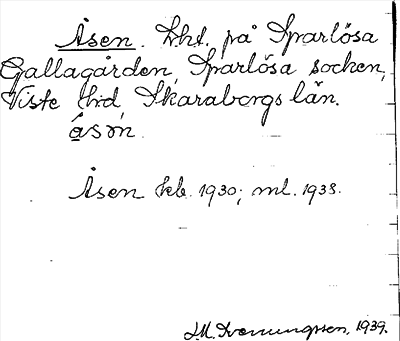 Åsen. Lht. på Sparlösa
Gallagården, Sparlösa socken,
Viste hd Skaraborgs län.
åsǹ.
Åsen kb. 1930; ml. 1938.
1939.